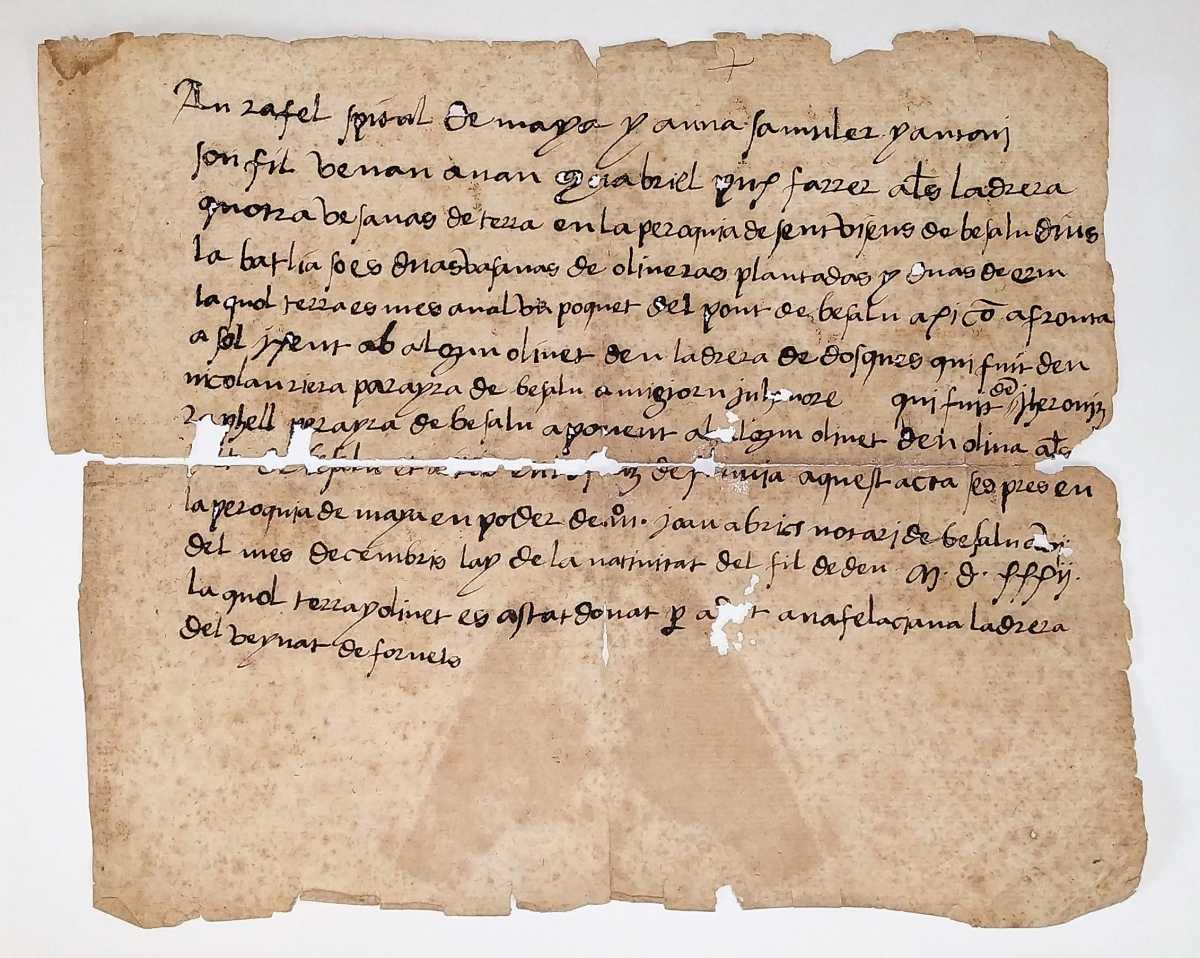 En rafel spital de maya y anna samuler y antoni
son fil venan a nan gabriel prix farrer als ladrera
quotra vesanas de terra en la peroquia de sent visens de besalu dins
la batlia so es duas vasanas de oliveras plantadas y duas de erm
la quol terra es mes anal vis poquet del pont de besalu axi co afronta
a sol ixent ab alogun olivet den ladrera de dosqurs qui fuit den
nicolau riera parayra de besalu a migiorn qui fuit de Jheronim
raphell parayra de besalu a ponent olivet den olina als
de besalu de fluvia aquest acta ses pres en
la peroquia de maya en poder de mo. joan abrics notari de besalu
del mes decembris lay de la nativitat del fil de deu M. d. xxxii.
la quol terra y olivet es astat donat per a na felaciana ladrera
del veynat de fornels